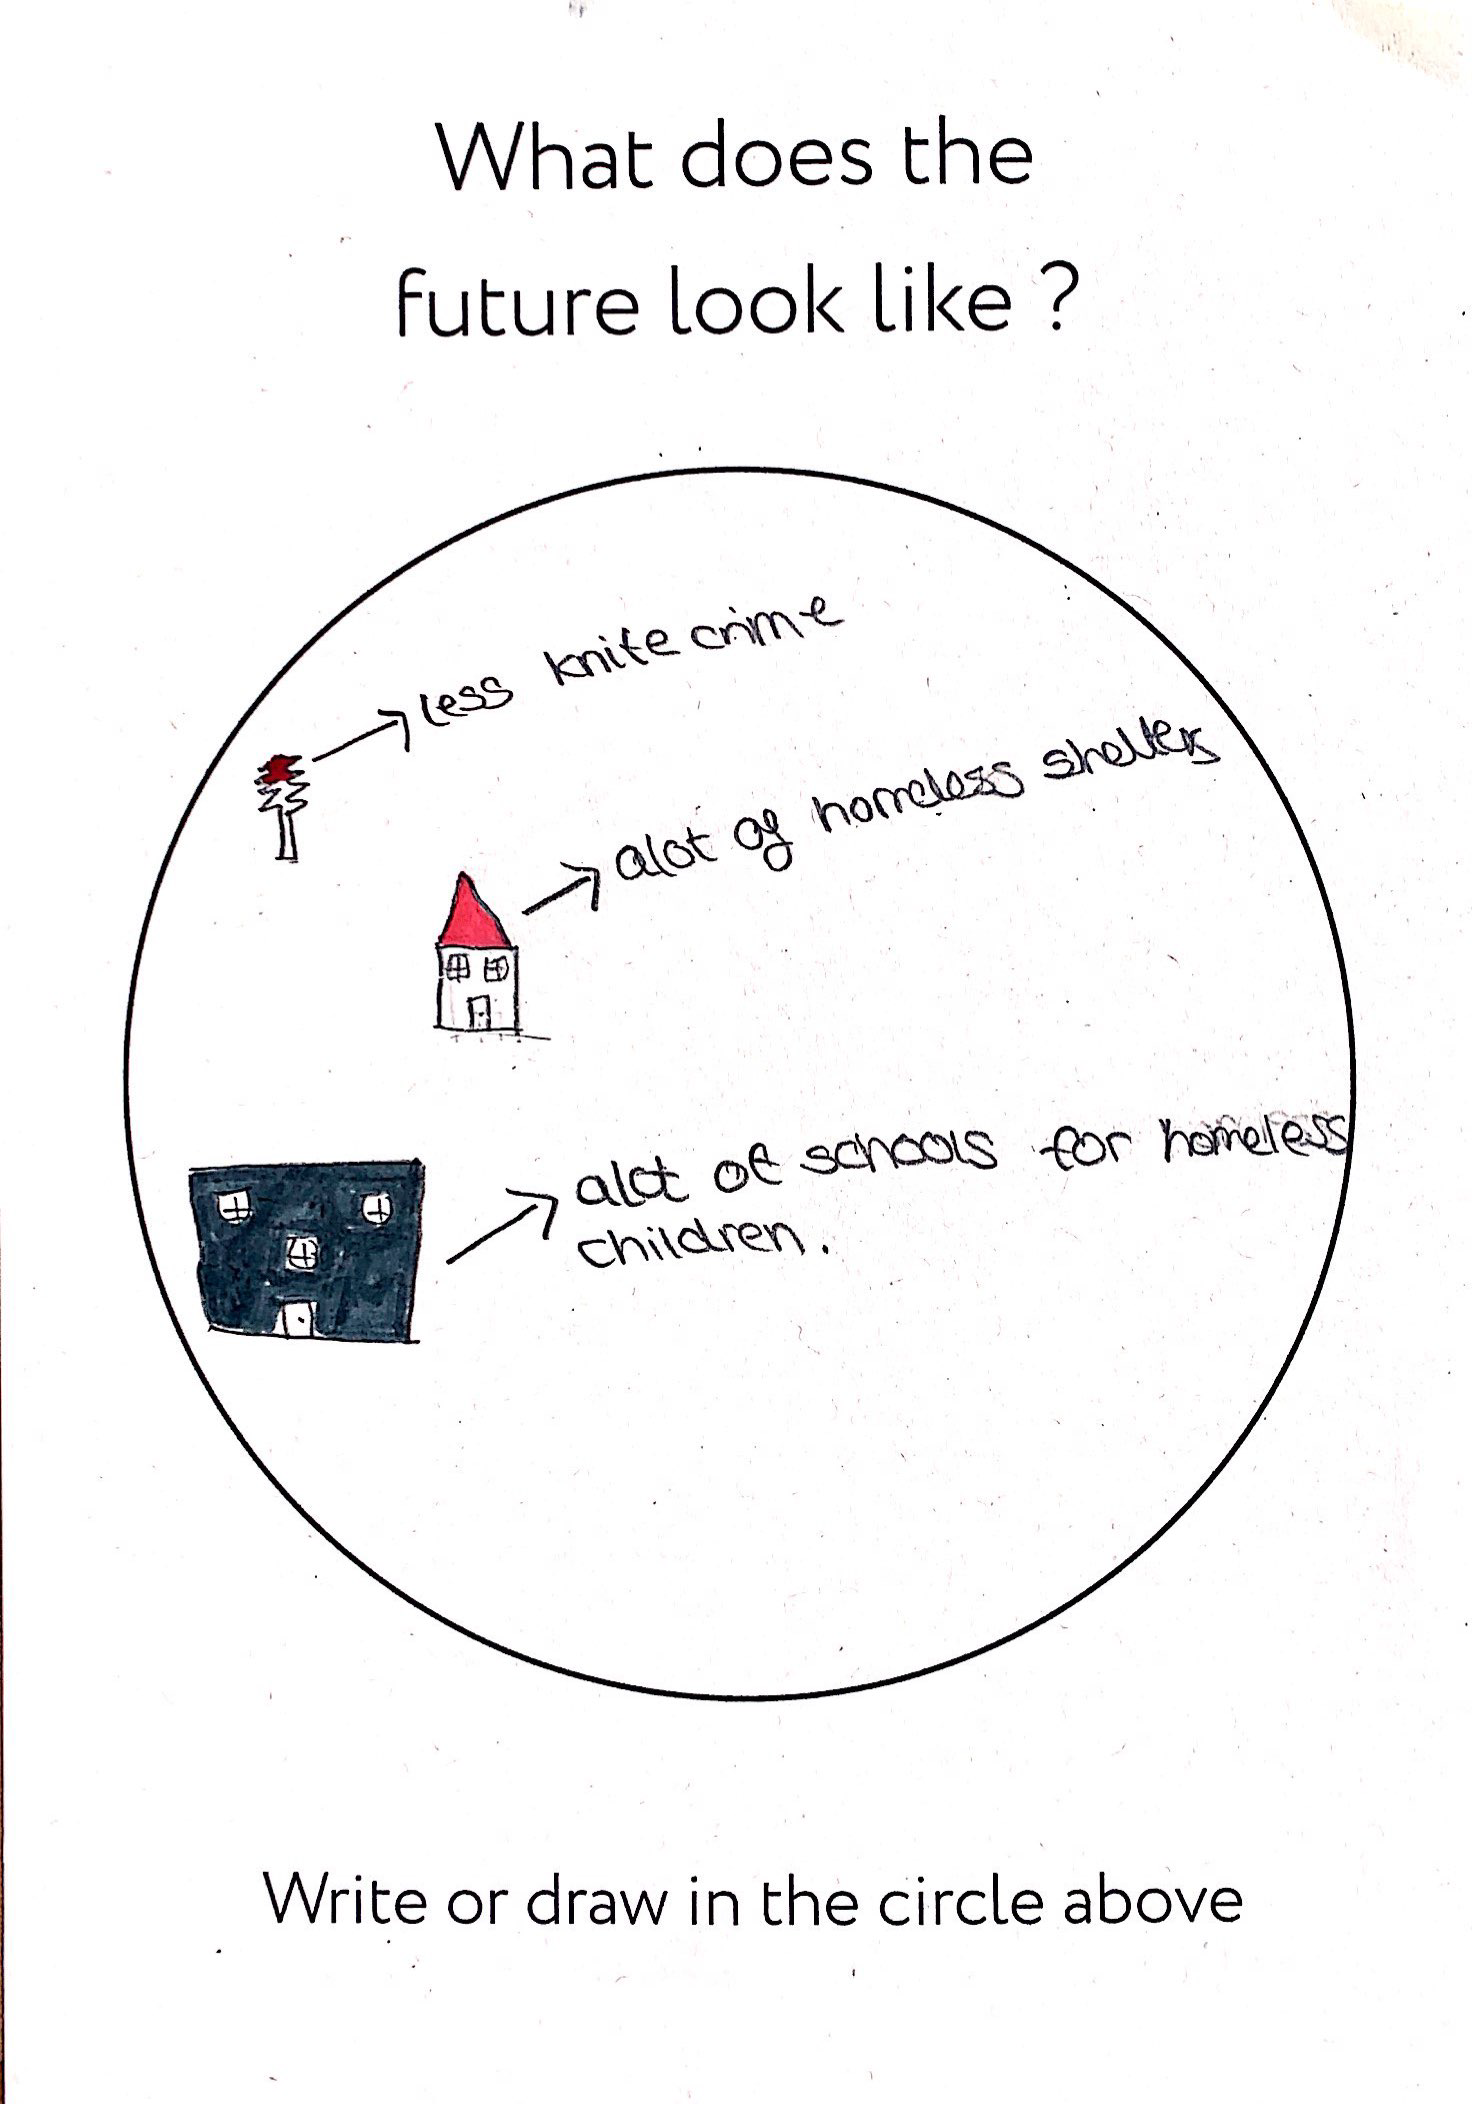 What does the
future look like ?
less knife crime
alot of homeless shelters
alot of schools for homeless
children.
Write or draw in the circle above